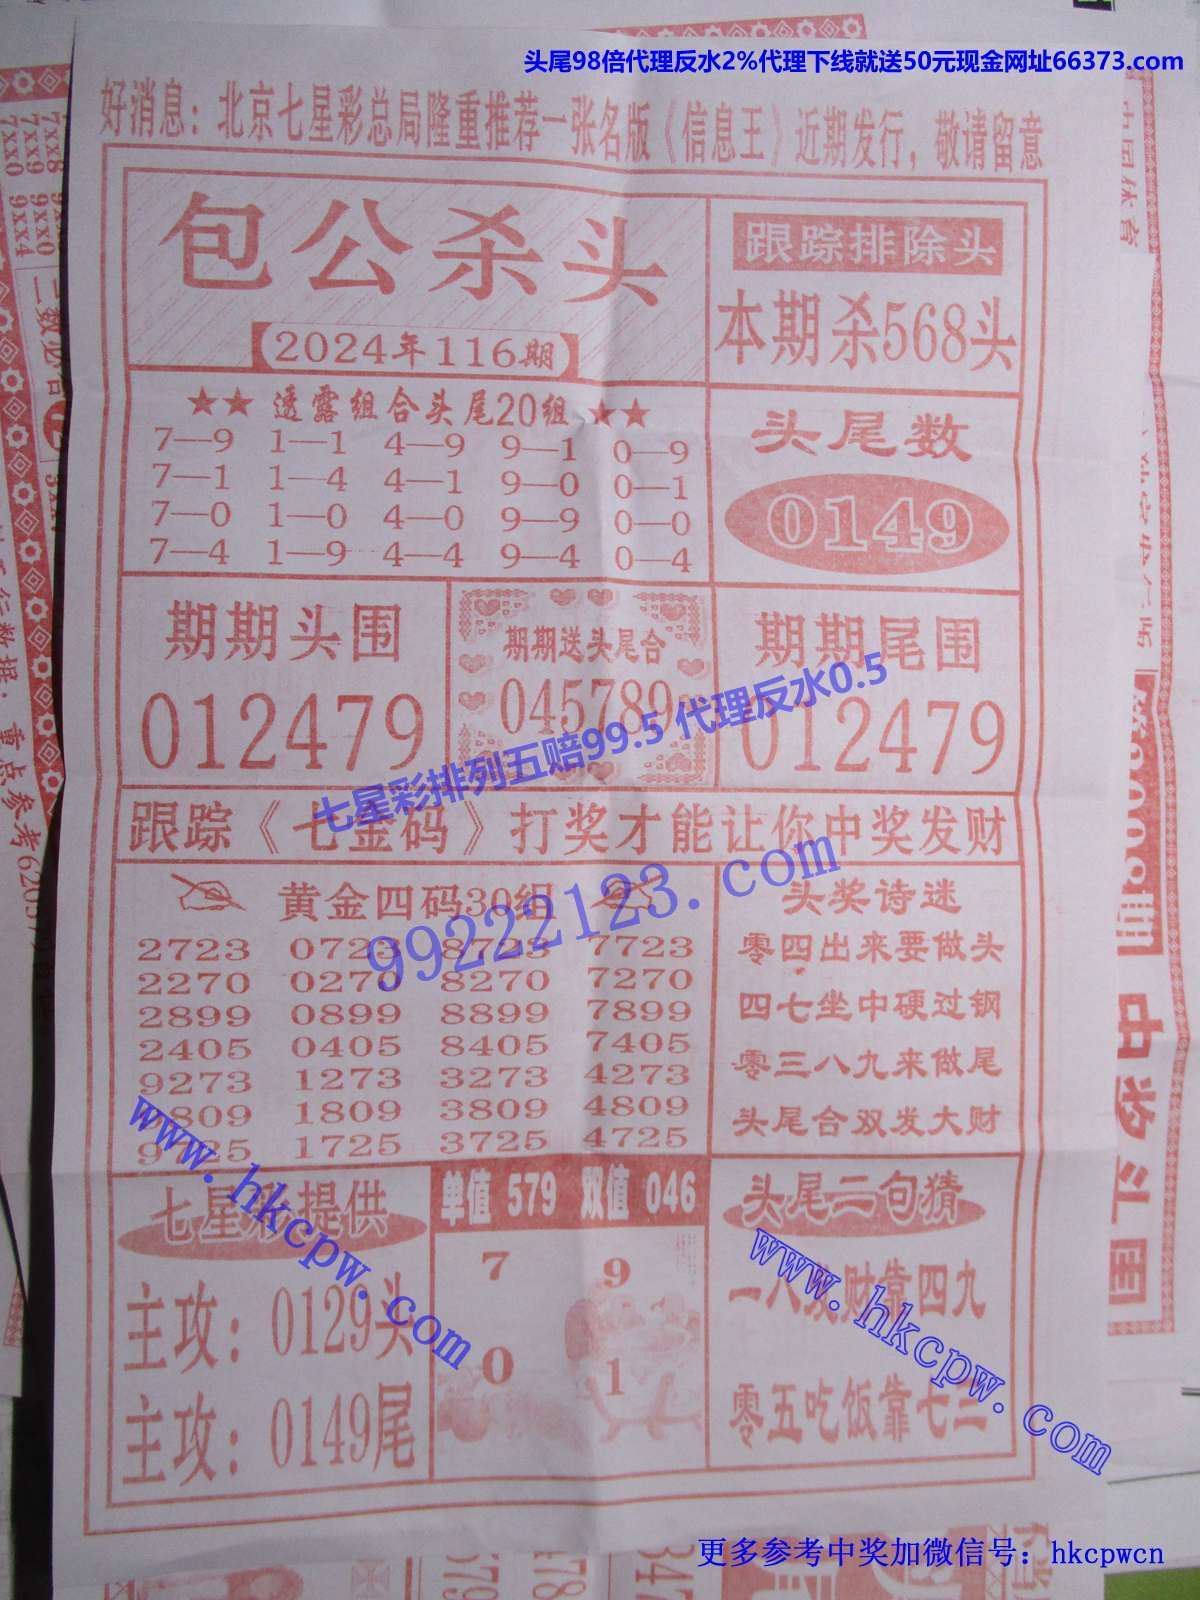 头尾98倍代理反水2%代理下线就送50元现金网址66373.com
好消息：北京七星彩总局隆重推荐一张名版《信息王》近期发行，敬请留意
包公杀头
【2024年116期】
跟踪排除头
本期杀568头
★★ 透露组合头尾20组 ★★
7—9 1—1 4—9 9—1 0—9
7—1 1—4 4—1 9—0 0—1
7—0 1—0 4—0 9—9 0—0
7—4 1—9 4—4 9—4 0—4
头尾数
0149
期期头围
012479
期期送头尾合
045789
期期尾围
012479
七星彩排列五赔99.5 代理反水0.5
跟踪《七金码》打奖才能让你中奖发财
99222123.com
黄金四码30组
2723 0723 8723 7723
2270 0270 8270 7270
2899 0899 8899 7899
2405 0405 8405 7405
9273 1273 3273 4273
9809 1809 3809 4809
9725 1725 3725 4725
头奖诗迷
零四出来要做头
四七坐中硬过钢
零三八九来做尾
头尾合双发大财
七星彩提供
主攻：0129头
主攻：0149尾
www.hkcpw.com
单值 579 双值 046
7 9
0 1
头尾二句猜
一八发财靠四九
零五吃饭靠七三
www.hkcpw.com
更多参考中奖加微信号：hkcpwcn
7xx8
7xx9
7xx0
9xx0
9xx4
重点参考